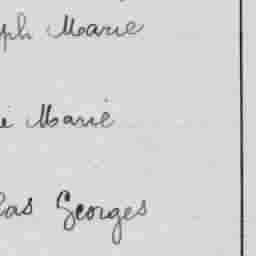 ph Marie
i Marie
as Georges